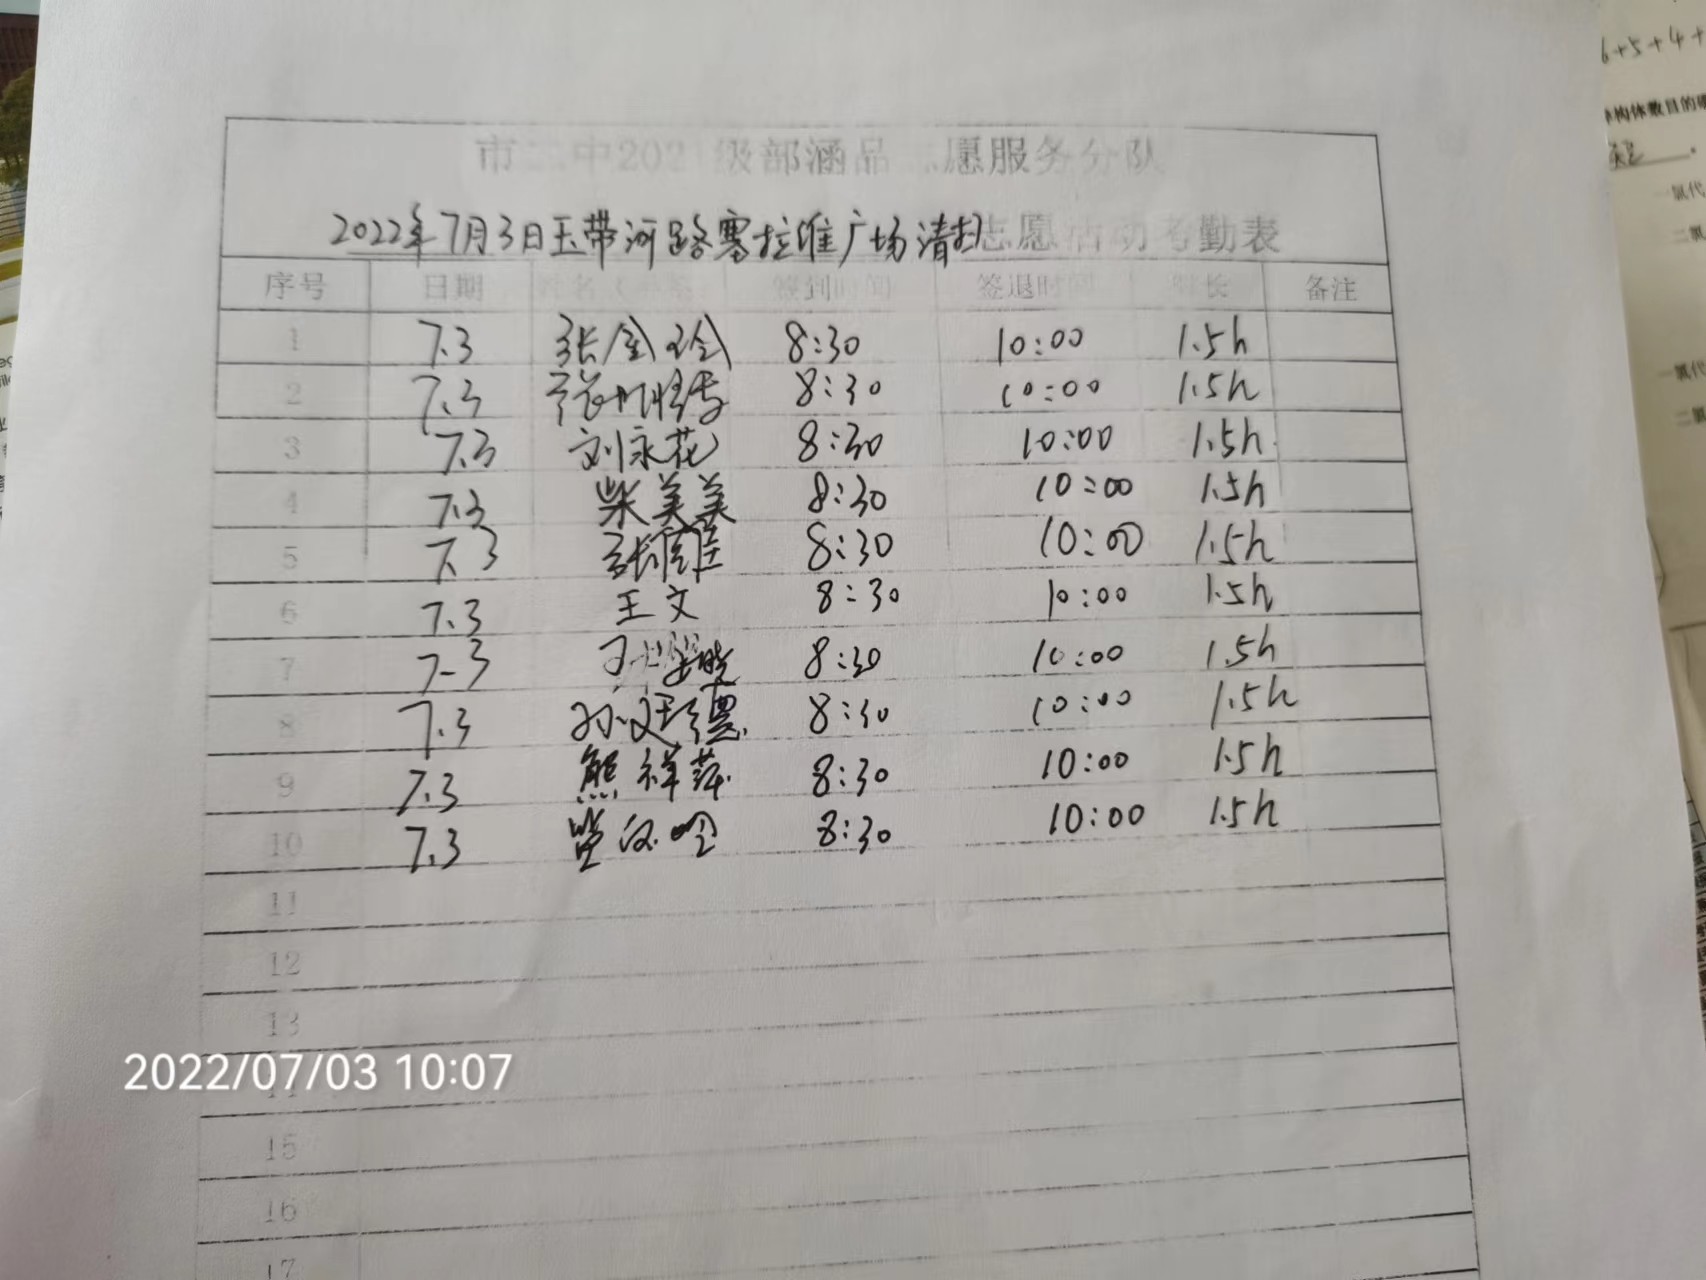 市二中202 级部涵品 愿服务分队
2022年7月3日玉带河路塞拉维广场清扫志愿活动考勤表
序号 日期 姓名 签到时间 签退时间 时长 备注
1 7.3 张金玲 8:30 10:00 1.5h
2 7.3 张 8:30 10:00 1.5h
3 7.3 刘永花 8:30 10:00 1.5h
4 7.3 柴美美 8:30 10:00 1.5h
5 7.3 张 8:30 10:00 1.5h
6 7.3 王文 8:30 10:00 1.5h
7 7-3 8:30 10:00 1.5h
8 7.3 孙 8:30 10:00 1.5h
9 7.3 熊祥萍 8:30 10:00 1.5h
10 7.3 8:30 10:00 1.5h
11
12
13
2022/07/03 10:07
15
16
17
6+5+4+
构体数目的
一氯代
二氯
一氯代
二氯